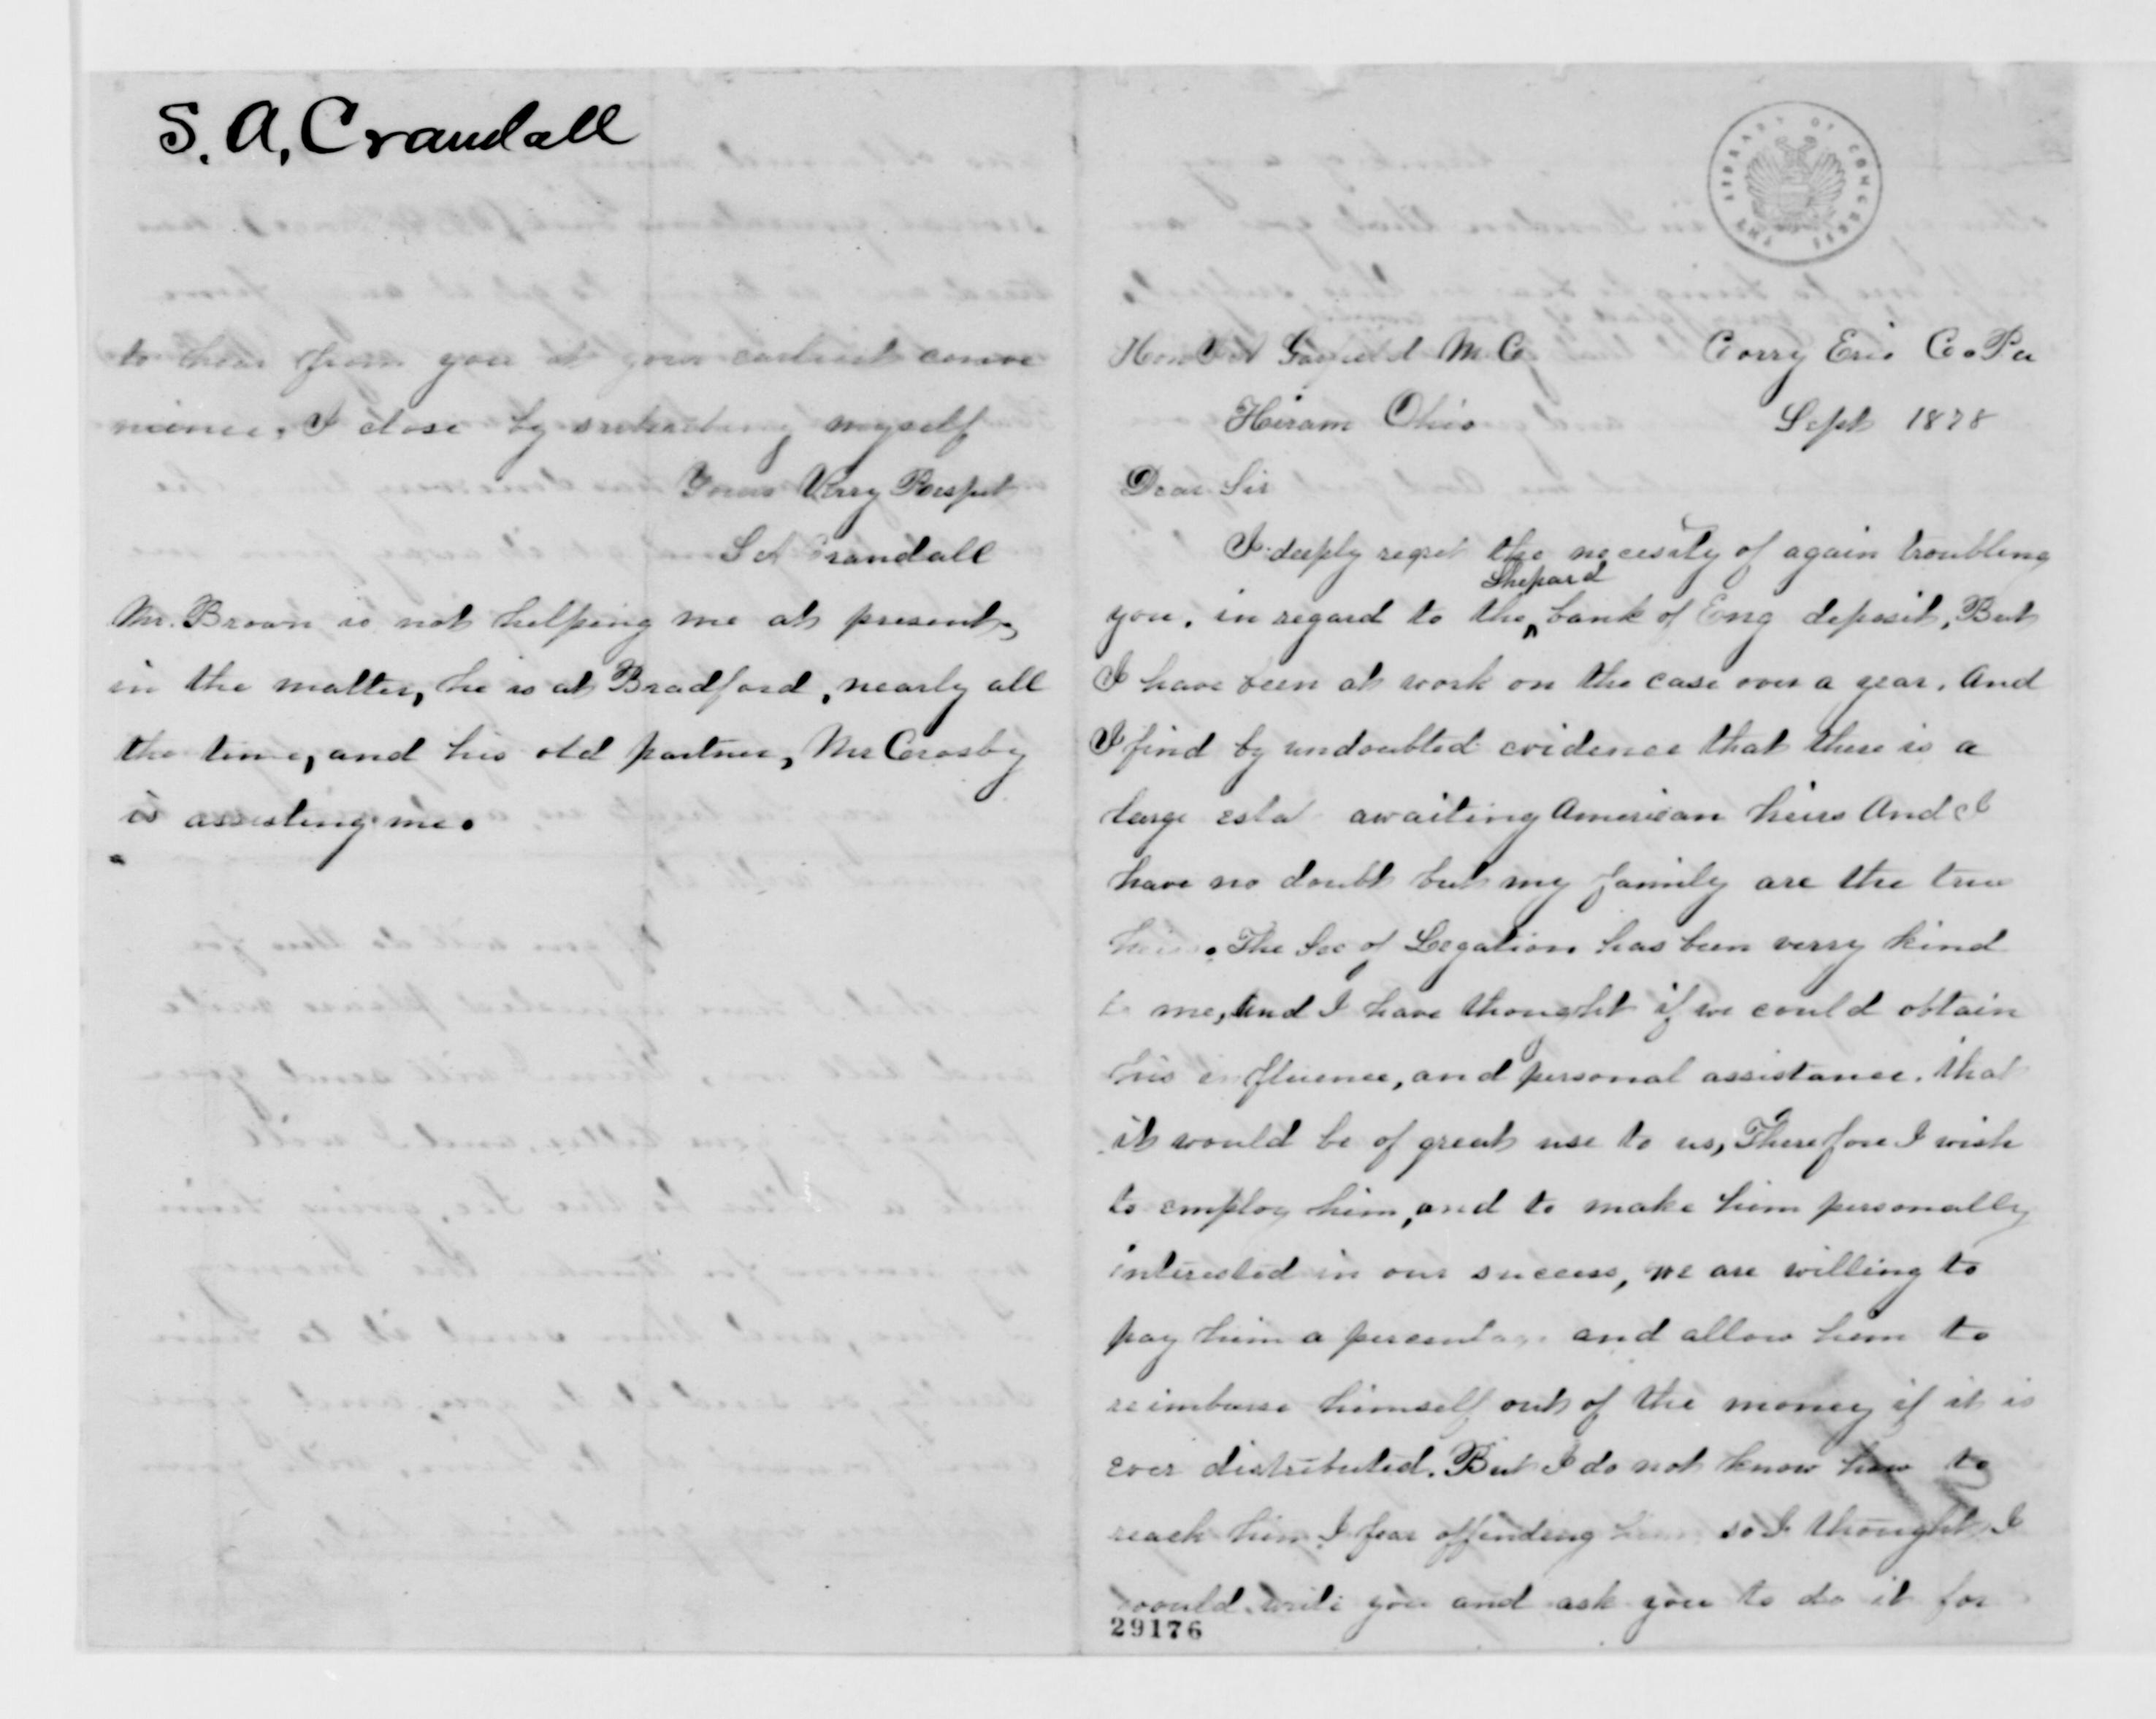 S. A. Crandall
to hear from you at your earliest conve
nience, I close by subscribing myself
Yours Verry Respet
S A Crandall
Mr. Brown is not helping me at present,
in the matter, he is at Bradford, nearly all
the time, and his old partner, Mr Crosby
is assisting me.
THE LIBRARY OF CONGRESS
Garfield M.C. Corry Erie Co. Pa
Hiram Ohio Sept 1878
Dear Sir
I deeply regret the necessity of again troubling
Shepard
you, in regard to the bank of Eng deposit, But
I have been at work on the case over a year. And
I find by undoubted evidence that there is a
large estat awaiting American heirs And I
have no doubt but my family are the true
heirs. The Sec of Legation has been verry kind
to me, And I have thought if we could obtain
his influence, and personal assistance. that
it would be of great use to us, Therefore I wish
to employ him, and to make him personally
interested in our success, we are willing to
pay him a percentage and allow him to
reimburse himself out of the money if it is
ever distributed. But I do not know how to
reach him I fear offending him so I thought I
would write you and ask you to do it for
29176